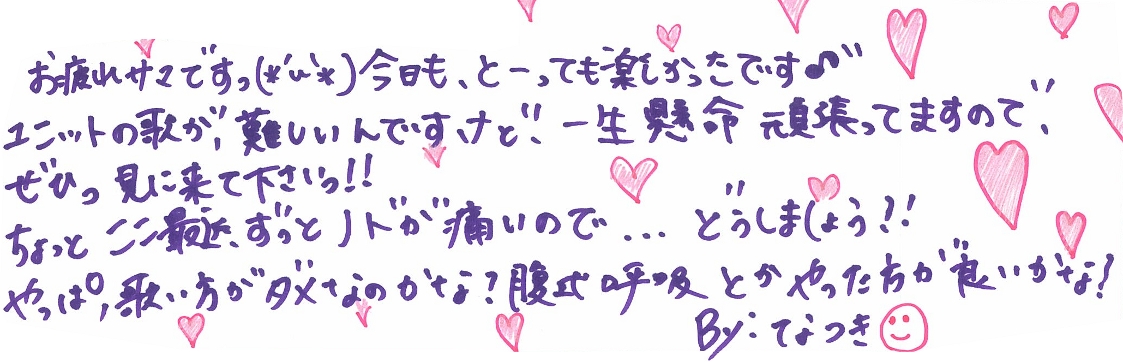 お疲れサマですっ(*´ω`*)今日も、とーっても楽しかったです♪"
ユニットの歌が、難しいんですけど、一生懸命頑張ってますので、
ぜひっ見に来て下さいっ!!
ちょっとここ最近、ずっとノドが痛いので... どうしましょう?!
やっぱ、歌い方がダメなのかな?腹式呼吸とかやった方が良いかな!
By:なつき